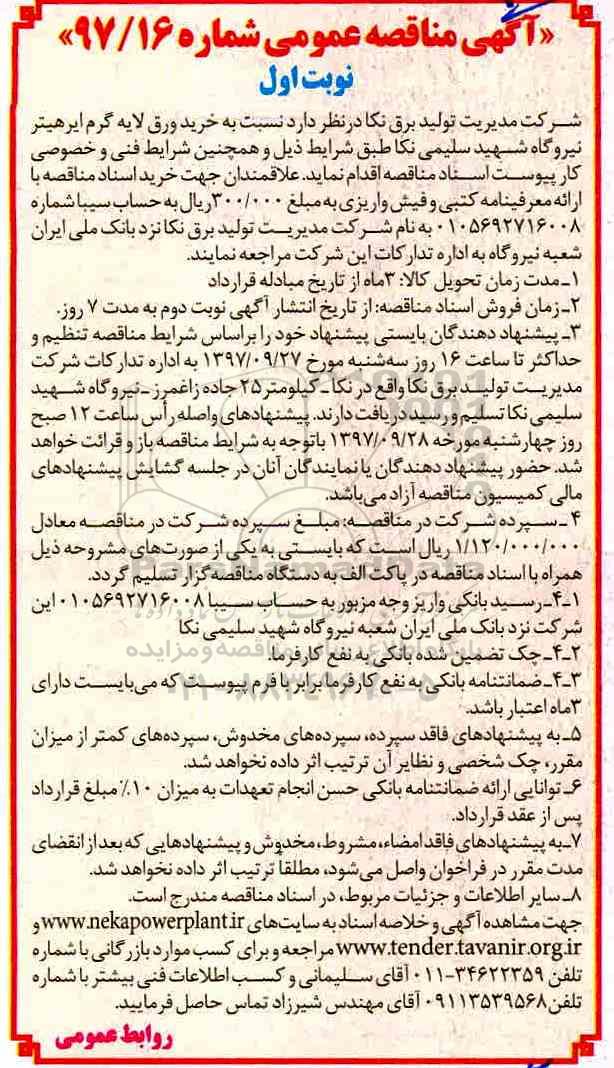 «آگهی مناقصه عمومی شماره ۹۷/۱۶»
نوبت اول
شرکت مدیریت تولید برق نکا درنظر دارد نسبت به خرید ورق لایه گرم ایرهیتر
نیروگاه شهید سلیمی نکا طبق شرایط ذیل و همچنین شرایط فنی و خصوصی
کار پیوست اسناد مناقصه اقدام نماید. علاقمندان جهت خرید اسناد مناقصه با
ارائه معرفینامه کتبی و فیش واریزی به مبلغ ۳۰۰/۰۰۰ریال به حساب سیبا شماره
۰۱۰۵۶۹۲۷۱۶۰۰۸ به نام شرکت مدیریت تولید برق نکا نزد بانک ملی ایران
شعبه نیروگاه به اداره تدارکات این شرکت مراجعه نمایند.
۱ـ مدت زمان تحویل کالا: ۳ماه از تاریخ مبادله قرارداد
۲ـ زمان فروش اسناد مناقصه: از تاریخ انتشار آگهی نوبت دوم به مدت ۷ روز.
۳ـ پیشنهاد دهندگان بایستی پیشنهاد خود را براساس شرایط مناقصه تنظیم و
حداکثر تا ساعت ۱۶ روز سه‌شنبه مورخ ۱۳۹۷/۰۹/۲۷ به اداره تدارکات شرکت
مدیریت تولید برق نکا واقع در نکا ـ کیلومتر ۲۵ جاده زاغمرز ـ نیروگاه شهید
سلیمی نکا تسلیم و رسید دریافت دارند. پیشنهادهای واصله رأس ساعت ۱۲ صبح
روز چهارشنبه مورخه ۱۳۹۷/۰۹/۲۸ باتوجه به شرایط مناقصه باز و قرائت خواهد
شد. حضور پیشنهاد دهندگان یا نمایندگان آنان در جلسه گشایش پیشنهادهای
مالی کمیسیون مناقصه آزاد می‌باشد.
۴ـ سپرده شرکت در مناقصه: مبلغ سپرده شرکت در مناقصه معادل
۱/۱۲۰/۰۰۰/۰۰۰ ریال است که بایستی به یکی از صورت‌های مشروحه ذیل
همراه با اسناد مناقصه در پاکت الف به دستگاه مناقصه‌گزار تسلیم گردد.
۴ـ۱ـ رسید بانکی واریز وجه مزبور به حساب سیبا ۰۱۰۵۶۹۲۷۱۶۰۰۸ این
شرکت نزد بانک ملی ایران شعبه نیروگاه شهید سلیمی نکا
۴ـ۲ـ چک تضمین شده بانکی به نفع کارفرما.
۴ـ۳ـ ضمانتنامه بانکی به نفع کارفرما برابر با فرم پیوست که می‌بایست دارای
۳ماه اعتبار باشد.
۵ـ به پیشنهادهای فاقد سپرده، سپرده‌های مخدوش، سپرده‌های کمتر از میزان
مقرر، چک شخصی و نظایر آن ترتیب اثر داده نخواهد شد.
۶ـ توانایی ارائه ضمانتنامه بانکی حسن انجام تعهدات به میزان ۱۰٪ مبلغ قرارداد
پس از عقد قرارداد.
۷ـ به پیشنهادهای فاقد امضاء، مشروط، مخدوش و پیشنهادهایی که بعد از انقضای
مدت مقرر در فراخوان واصل می‌شود، مطلقاً ترتیب اثر داده نخواهد شد.
۸ـ سایر اطلاعات و جزئیات مربوط، در اسناد مناقصه مندرج است.
جهت مشاهده آگهی و خلاصه اسناد به سایت‌های www.nekapowerplant.ir و
www.tender.tavanir.org.ir مراجعه و برای کسب موارد بازرگانی با شماره
تلفن ۳۴۶۲۲۳۵۹-۰۱۱ آقای سلیمانی و کسب اطلاعات فنی بیشتر با شماره
تلفن ۰۹۱۱۳۵۳۹۵۶۸ آقای مهندس شیرزاد تماس حاصل فرمایید.
روابط عمومی